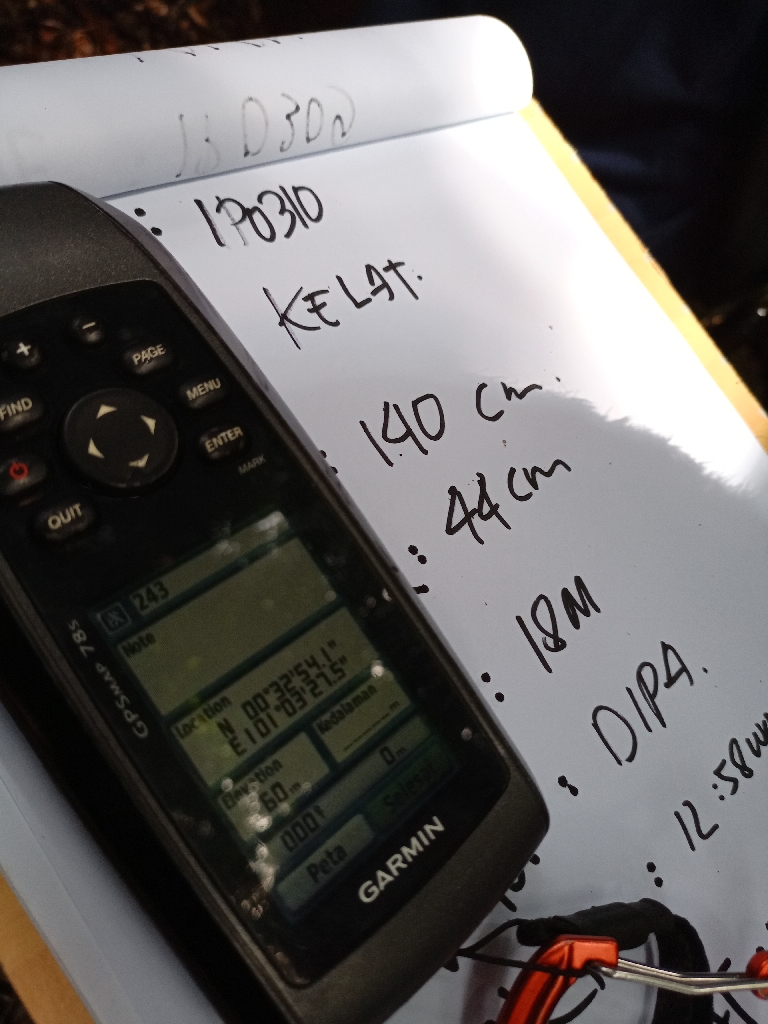 : 1P0310
KELAT.
: 140 cm.
: 44 cm
: 18M
: DIPA.
: 12:58
+
−
PAGE
FIND
MENU
ENTER
MARK
QUIT
GPSMAP 78s
243
Note
Location
N 00°32'54.1"
E101°03'27.5"
Elevation
Kedalaman
60m
_____m
000°T
0m
Peta
Selesai
GARMIN